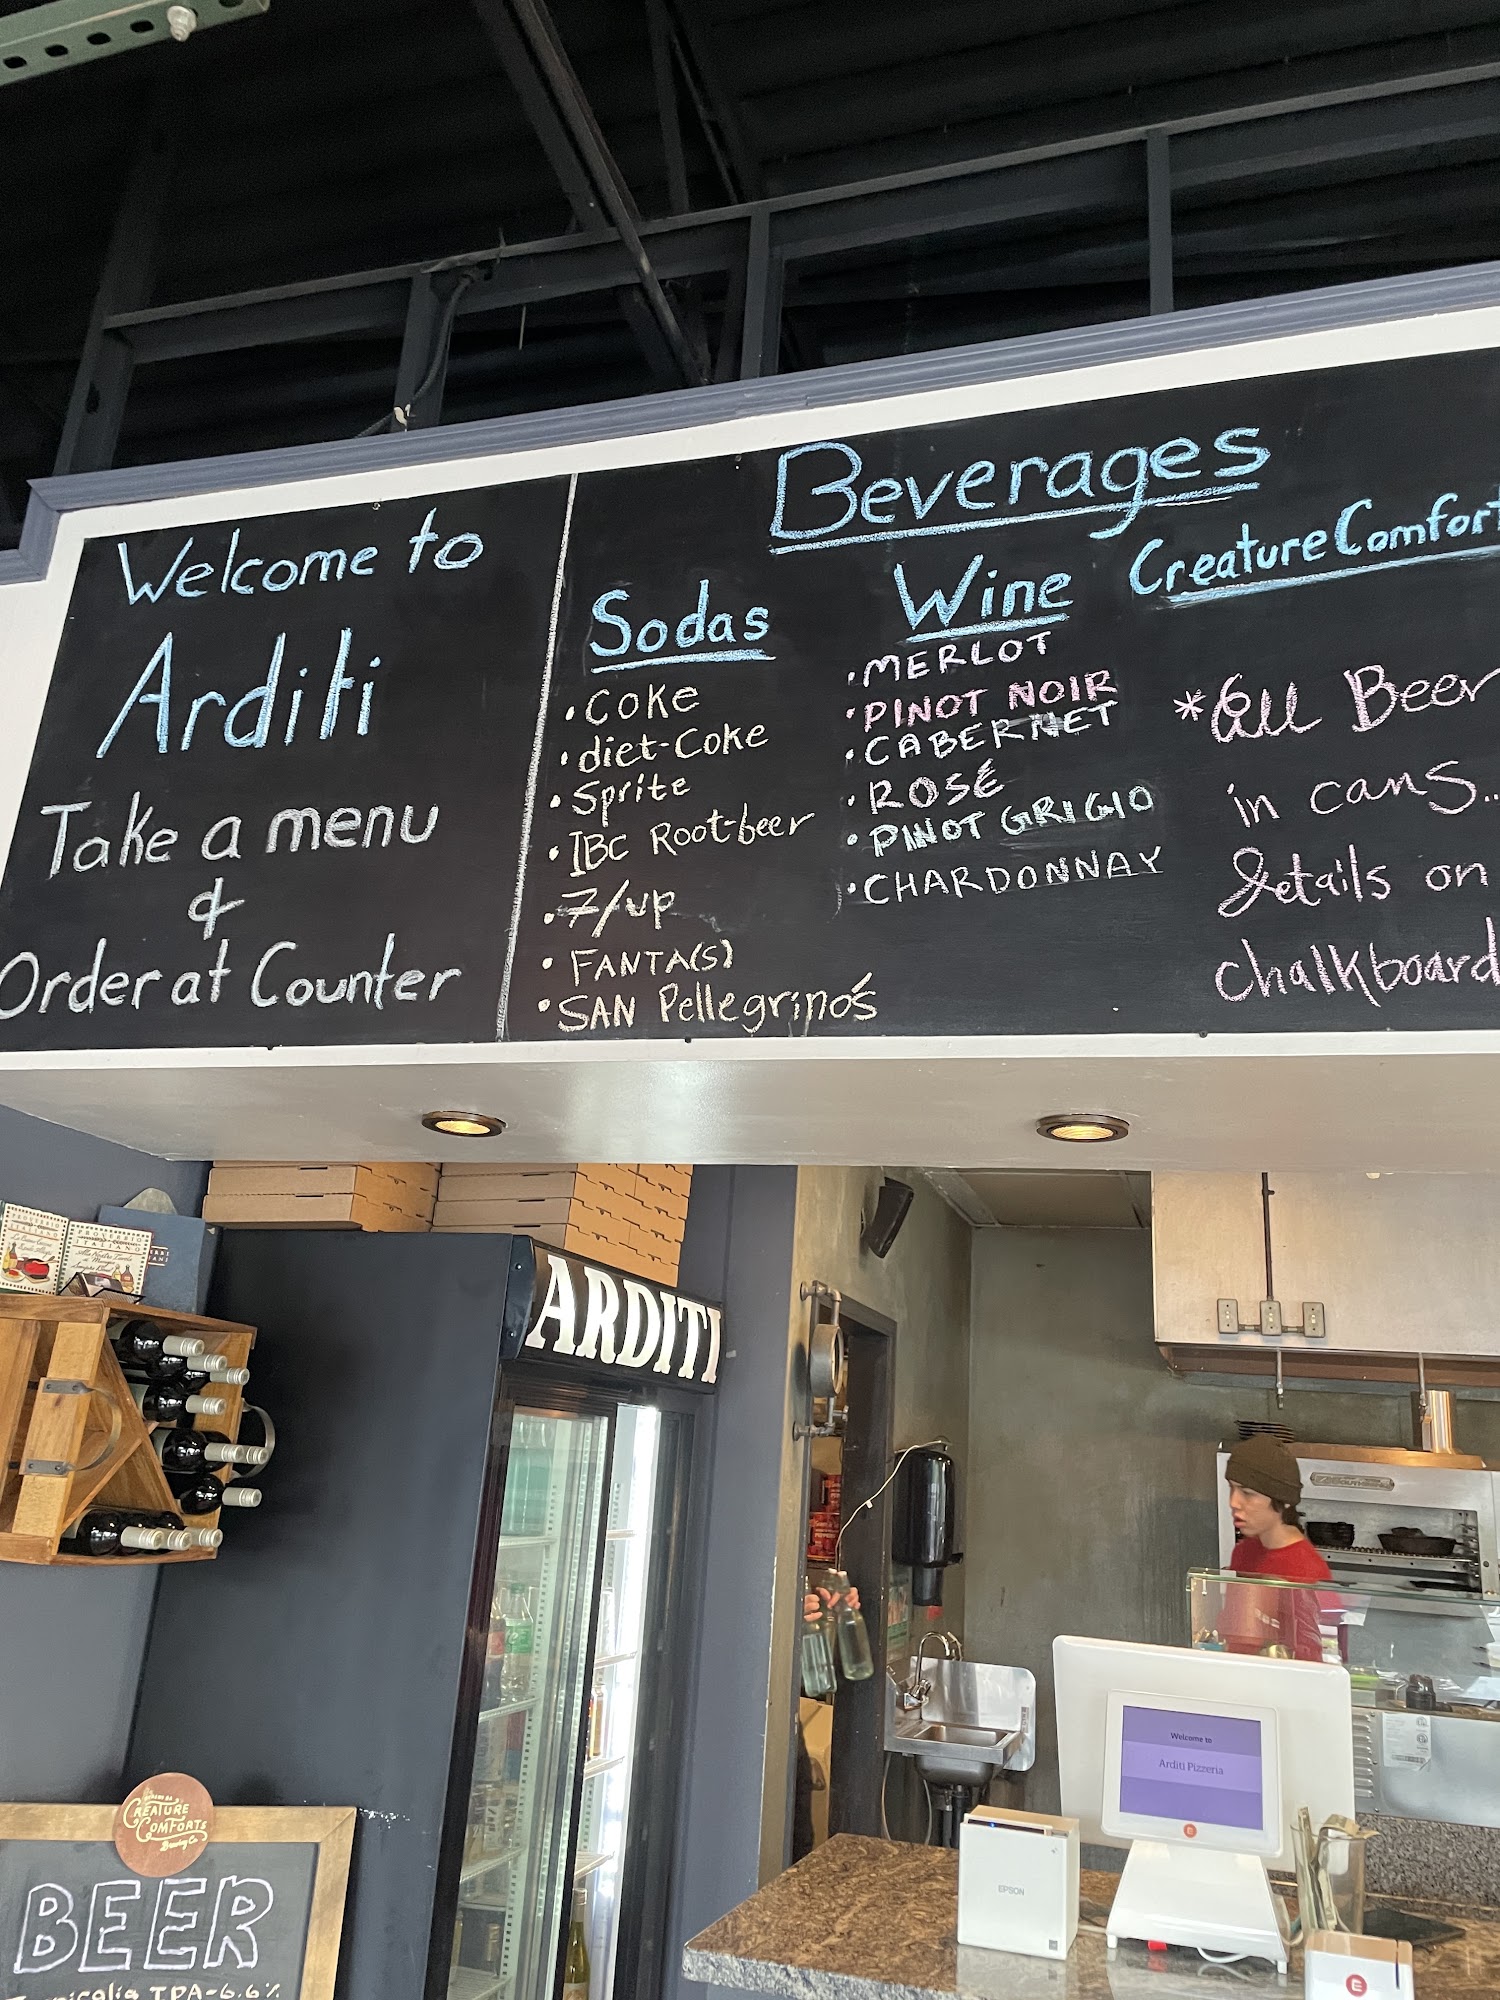 Welcome to
Arditi
Take a menu
&
Order at Counter
Beverages
Sodas
• COKE
• diet-Coke
• Sprite
• IBC Root-beer
• 7/up
• FANTA(S)
• SAN Pellegrino's
Wine
• MERLOT
• PINOT NOIR
• CABERNET
• ROSÉ
• PINOT GRIGIO
• CHARDONNAY
Creature Comfort
*All Beer
in cans..
details on
chalkboard
ARDITI
Welcome to
Arditi Pizzeria
EPSON
CREATURE
COMFORTS
Brewing Co.
BEER
Tropicalia IPA-6.6%